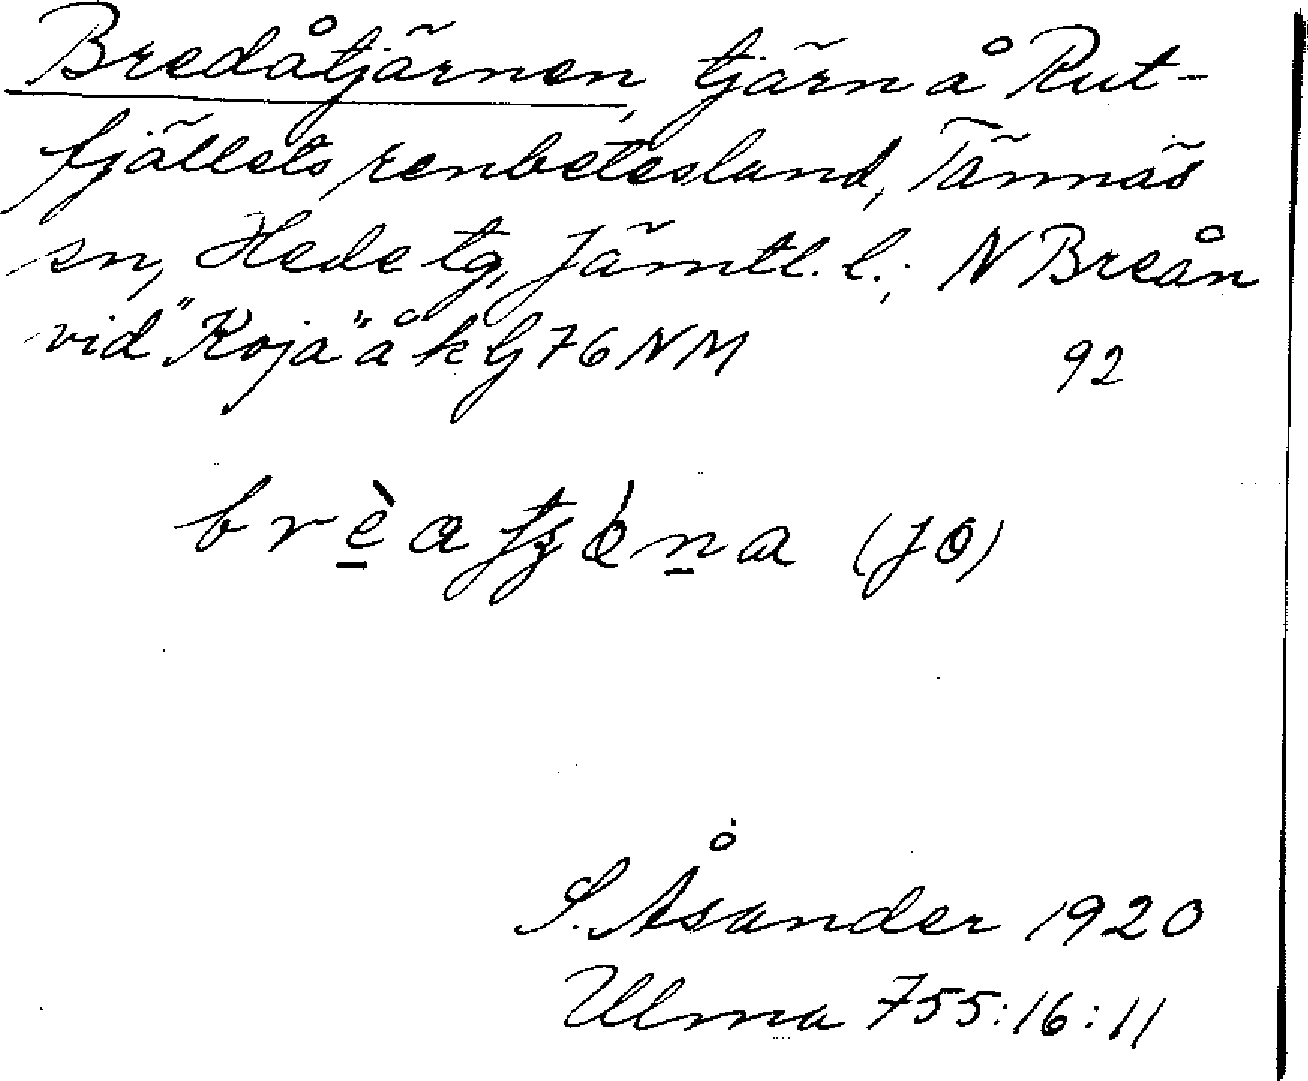 Bredåtjärnen, tjärn å Rut-
fjällets renbetesland, Tännäs
sn, Hede tg, Jämtl. l.; N Breån
vid "Koja" å k G 76 NM 92
(JO)
S. Åsander 1920
Ulma 755:16:11